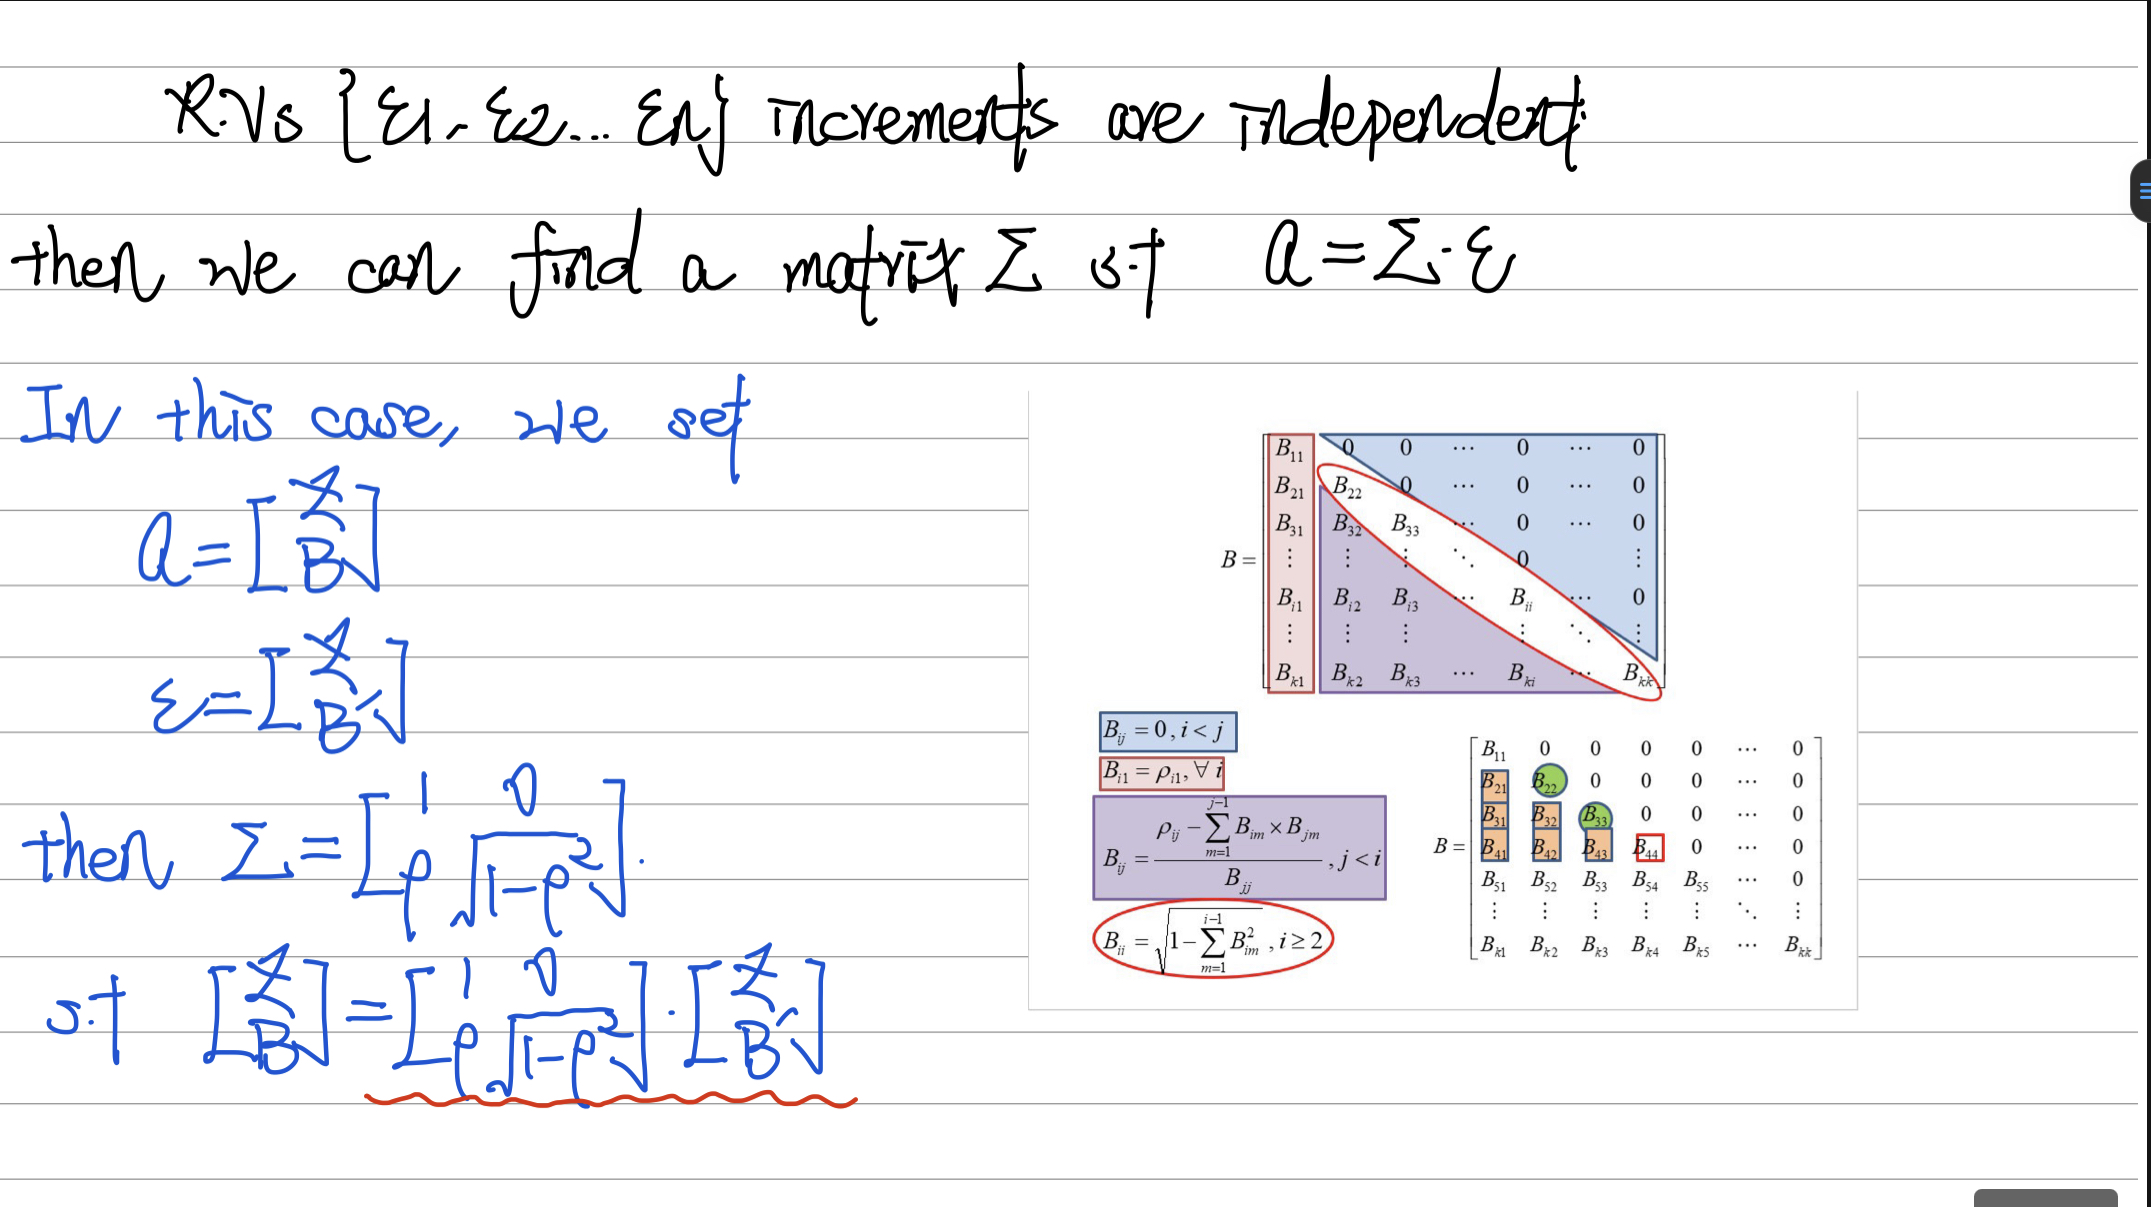 R.Vs {ε1, ε2... εn} increments are independent
then we can find a matrix Σ s.t a = Σ · ε
In this case, we set
a = [Z B]
ε = [Z B']
then Σ = [1 0 ρ √1-ρ²].
s.t [Z B] = [1 0 ρ √1-ρ²] · [Z B']
B =
B11 0 0 ⋯ 0 ⋯ 0
B21 B22 0 ⋯ 0 ⋯ 0
B31 B32 B33 ⋯ 0 ⋯ 0
⋮ ⋮ ⋮ ⋱ 0 ⋮
Bi1 Bi2 Bi3 ⋯ Bii ⋯ 0
⋮ ⋮ ⋮ ⋮ ⋱ ⋮
Bk1 Bk2 Bk3 ⋯ Bki ⋯ Bkk
Bij = 0, i < j
Bi1 = ρi1, ∀ i
Bij = (ρij − ∑_{m=1}^{j−1} Bim × Bjm) / Bjj , j < i
Bii = √(1 − ∑_{m=1}^{i−1} B²im) , i ≥ 2
B =
B11 0 0 0 0 ⋯ 0
B21 B22 0 0 0 ⋯ 0
B31 B32 B33 0 0 ⋯ 0
B41 B42 B43 B44 0 ⋯ 0
B51 B52 B53 B54 B55 ⋯ 0
⋮ ⋮ ⋮ ⋮ ⋮ ⋱ ⋮
Bk1 Bk2 Bk3 Bk4 Bk5 ⋯ Bkk